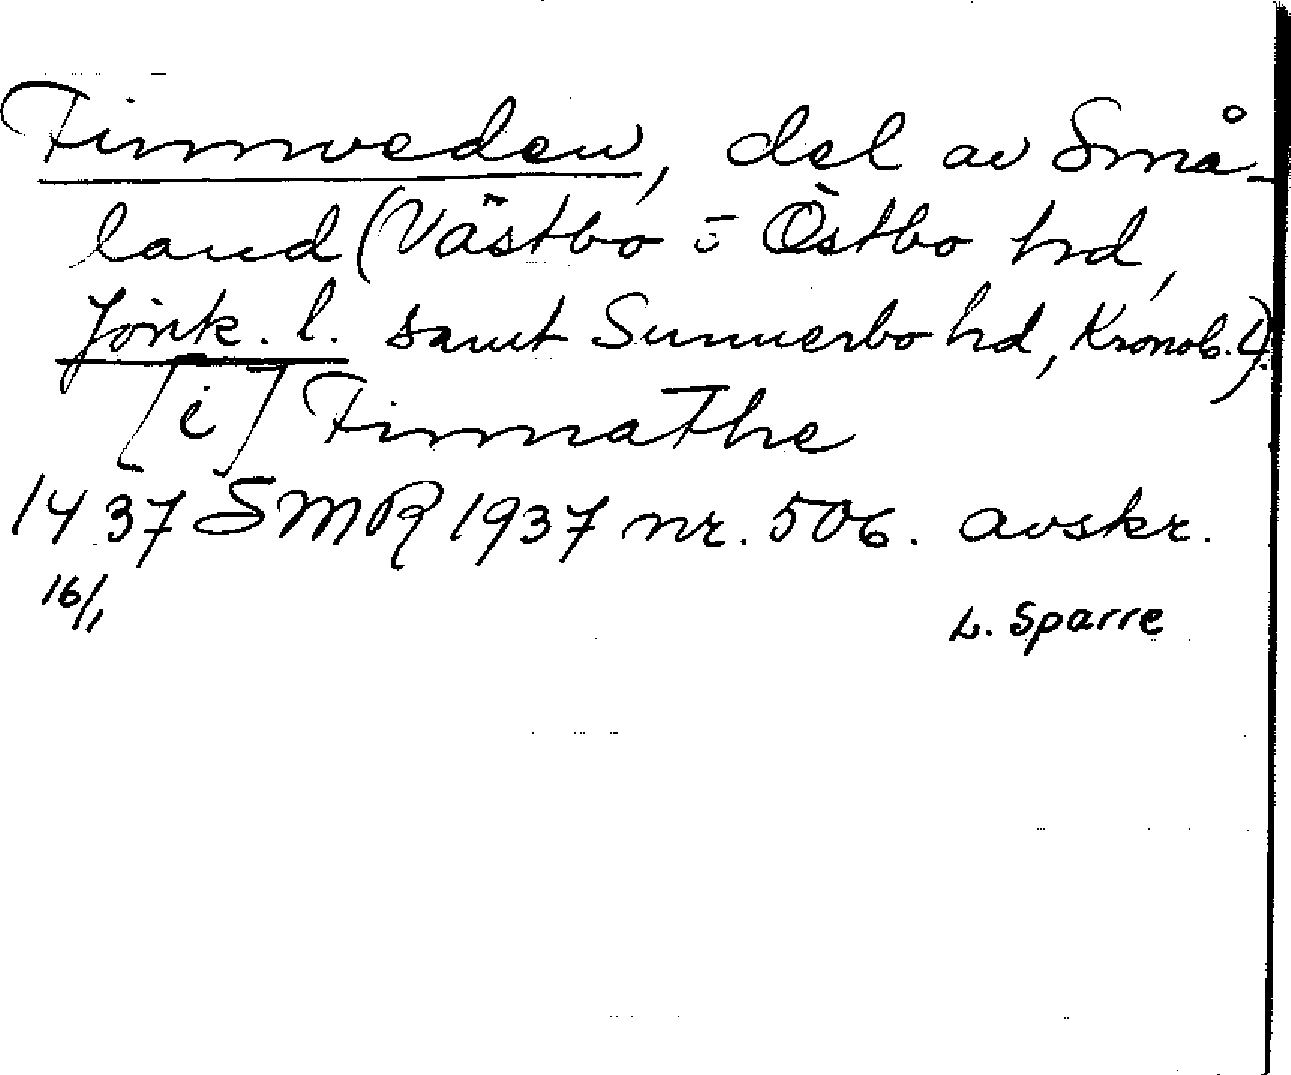 Finnveden, del av Små-
land (Västbo o Östbo hd,
Jönk. l. samt Sunnerbo hd, Kronob. l).
[i] Finnathe
1437 SMR 1937 nr. 506. avskr.
16/1 L. Sparre